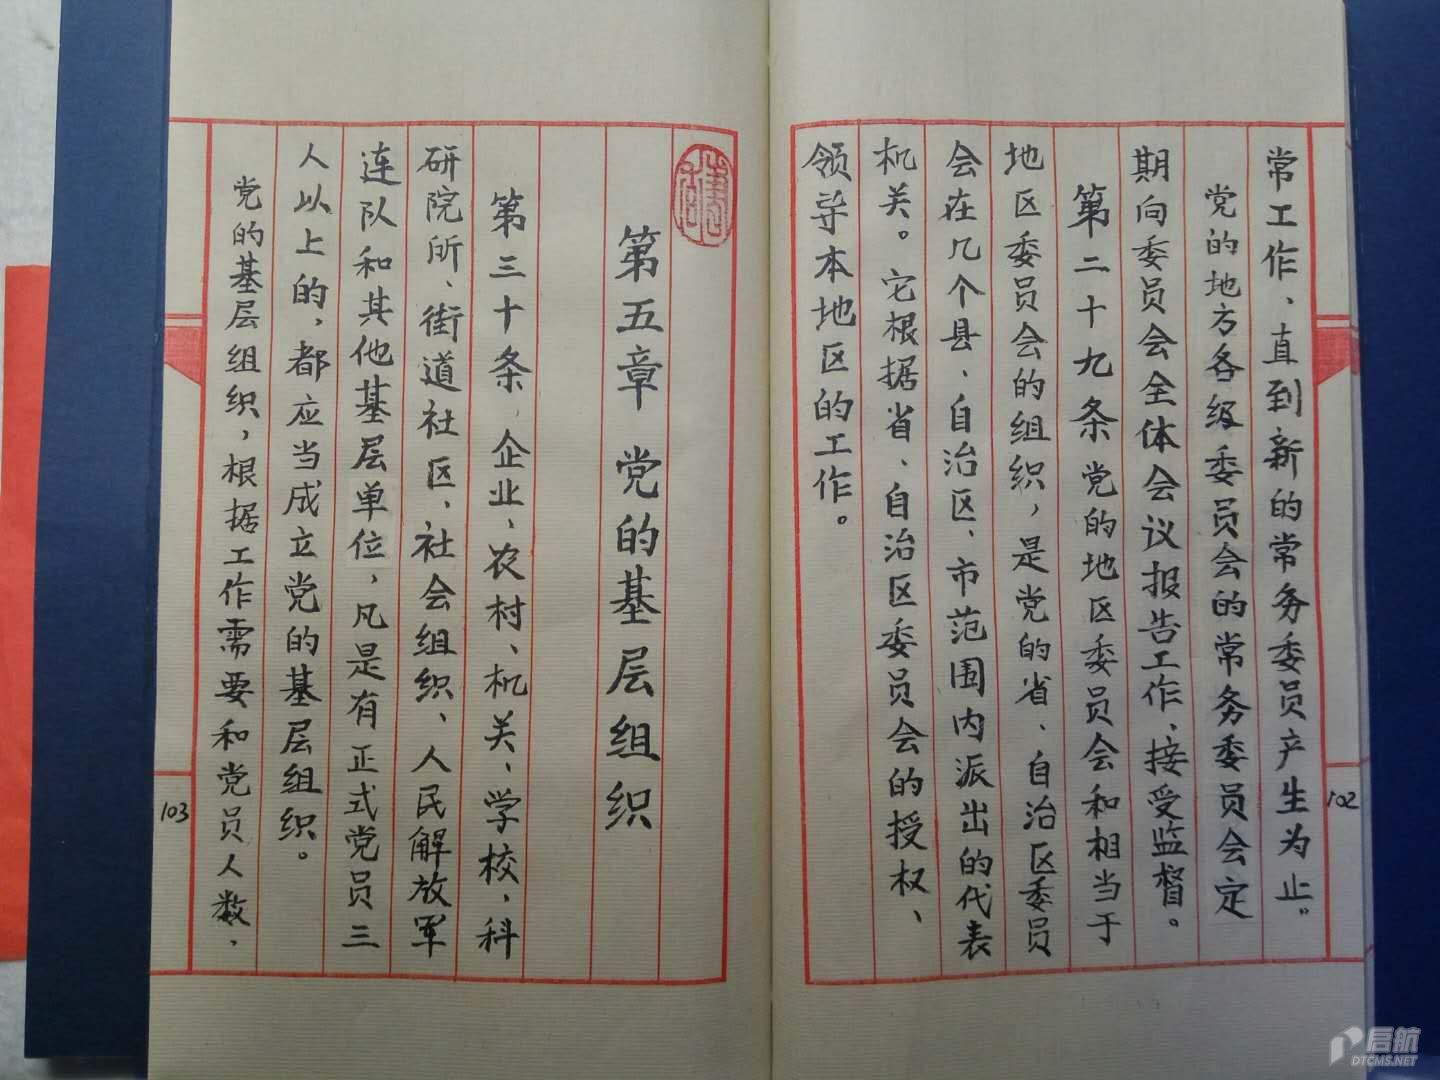 常工作、直到新的常务委员产生为止。
党的地方各级委员会的常务委员会定
期向委员会全体会议报告工作、接受监督。
第二十九条 党的地区委员会和相当于
地区委员会的组织，是党的省、自治区委员
会在几个县、自治区、市范围内派出的代表
机关。它根据省、自治区委员会的授权、
领导本地区的工作。
102
第五章 党的基层组织
第三十条 企业、农村、机关、学校、科
研院所、街道社区、社会组织、人民解放军
连队和其他基层单位，凡是有正式党员三
人以上的，都应当成立党的基层组织。
党的基层组织，根据工作需要和党员人数，
103
启航
DTCMS.NET